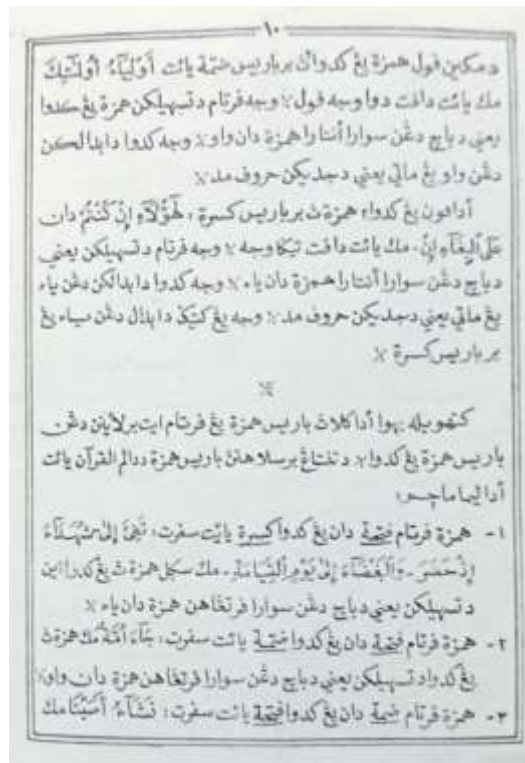 ١٠
دمكين فول همزة يڠ كدوان برباريس ضمة يائت أَوْلِيَآءُ أُولَـٰٓئِكَ
مك يائت دافت دوا وجه فول٪ وجه فرتام دتسهيلكن همزة يڠ كدوا
يعني دباچ دڠن سوارا أنتارا همزة دان واو٪ وجه كدوا دابدالكن
دڠن واو يڠ ماتي يعني دجديكن حروف مد٪
أدافون يڠ كدواء همزة ث برباريس كسرة، هَٰٓؤُلَآءِ إِنْ كُنْتُمْ دان
عَلَى ٱلْبِغَآءِ إِنْ. مك يائت دافت تيݢا وجه٪ وجه فرتام دتسهيلكن يعني
دباچ دڠن سوارا أنتارا همزة دان ياء٪ وجه كدوا دابدالكن دڠن ياء
يڠ ماتي يعني دجديكن حروف مد٪ وجه يڠ كتيݢ دابدال دڠن ياء يڠ
برباريس كسرة٪
٪
كتهويله بهوا أداكلاث باريس همزة يڠ فرتام ايت برلاينن دڠن
باريس همزة يڠ كدوا٪ دتنتاڠ برسلاهنن باريس همزة ددالم القرآن يائت
أدا ليما ماچم:
١- همزة فرتام فتحة دان يڠ كدوا كسرة يائت سفرت: تَفِىٓءَ إِلَىٰ شُهَدَآءَ
إِذْ حَضَرَ - وَٱلْبَغْضَآءَ إِلَىٰ يَوْمِ ٱلْقِيَامَةِ. مك سݢل همزة ث يڠ كدوا اين
دتسهيلكن يعني دباچ دڠن سوارا فرتڠاهن همزة دان ياء٪
٢- همزة فرتام فتحة دان يڠ كدوا ضمة يائت سفرت: جَآءَ أُمَّةً مك همزة ث
يڠ كدوا دتسهيلكن يعني دباچ دڠن سوارا فرتڠاهن همزة دان واو٪
٣- همزة فرتام ضمة دان يڠ كدوا فتحة يائت سفرت: نَشَآءُ أَصَبْنَا مك